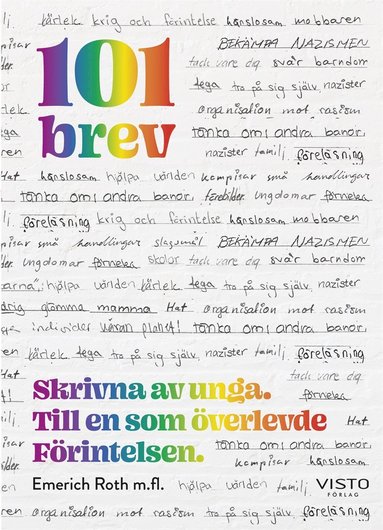 kärlek krig och förintelse hänslosam mobbaren
kompisar BEKÄMPA NAZISMEN
101
tack vare dig svår barndom
tega tro på sig själv, nazister
organisation mot rasism
brev
tänka om andra banor,
nazister familj, föreläsning
Hat hänslosam hjälpa världen kompisar små handlingar
tänka om andra banor, förebilder ungdomar förneka
föreläsning krig och förintelse hänslosam mobbaren
kompisar små handlingar slagsmål BEKÄMPA NAZISMEN
ungdomar förneka skolor tack vare dig svår barndom
hjälpa världen kärlek tega tro på sig själv, nazister
aldrig glömma mamma Hat organisation mot rasism
individer våran planet! tänka om andra banor,
kärlek tega tro på sig själv, nazister familj, föreläsning
Skrivna av unga.
tack vare dig
förneka
Till en som överlevde
organisation mot rasism
Förintelsen.
tänka om andra banor,
kompisar hänslosam
Emerich Roth m.fl.
hjälpa världen
VISTO
FÖRLAG
organisation mot rasism tro på sig själv, nazister